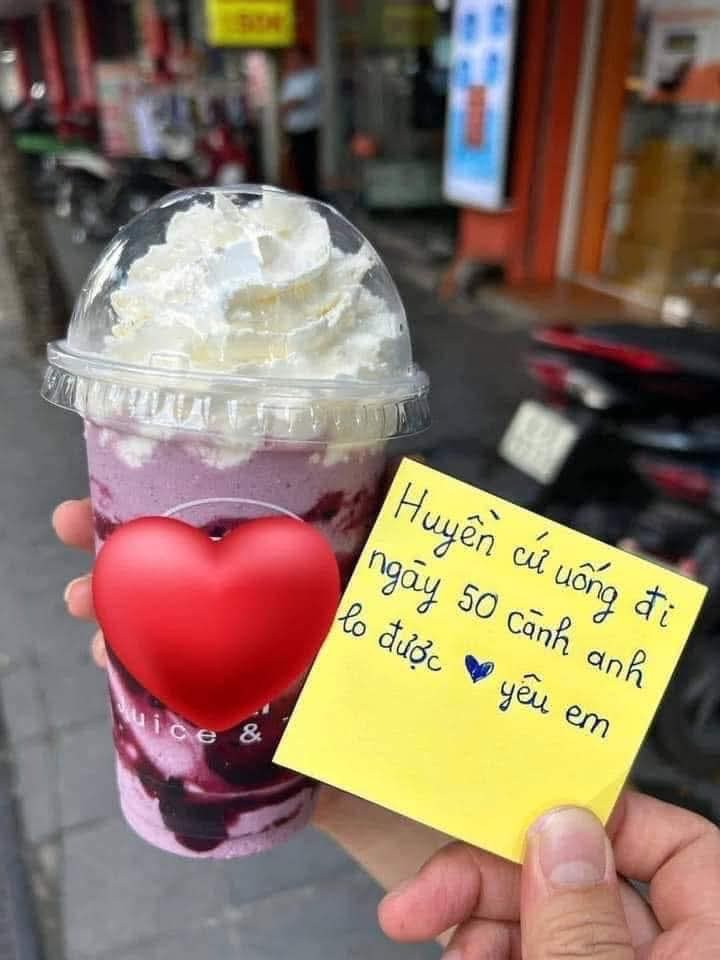 Huyền cứ uống đi
ngày 50 cành anh
lo được ♥ yêu em
Juice &